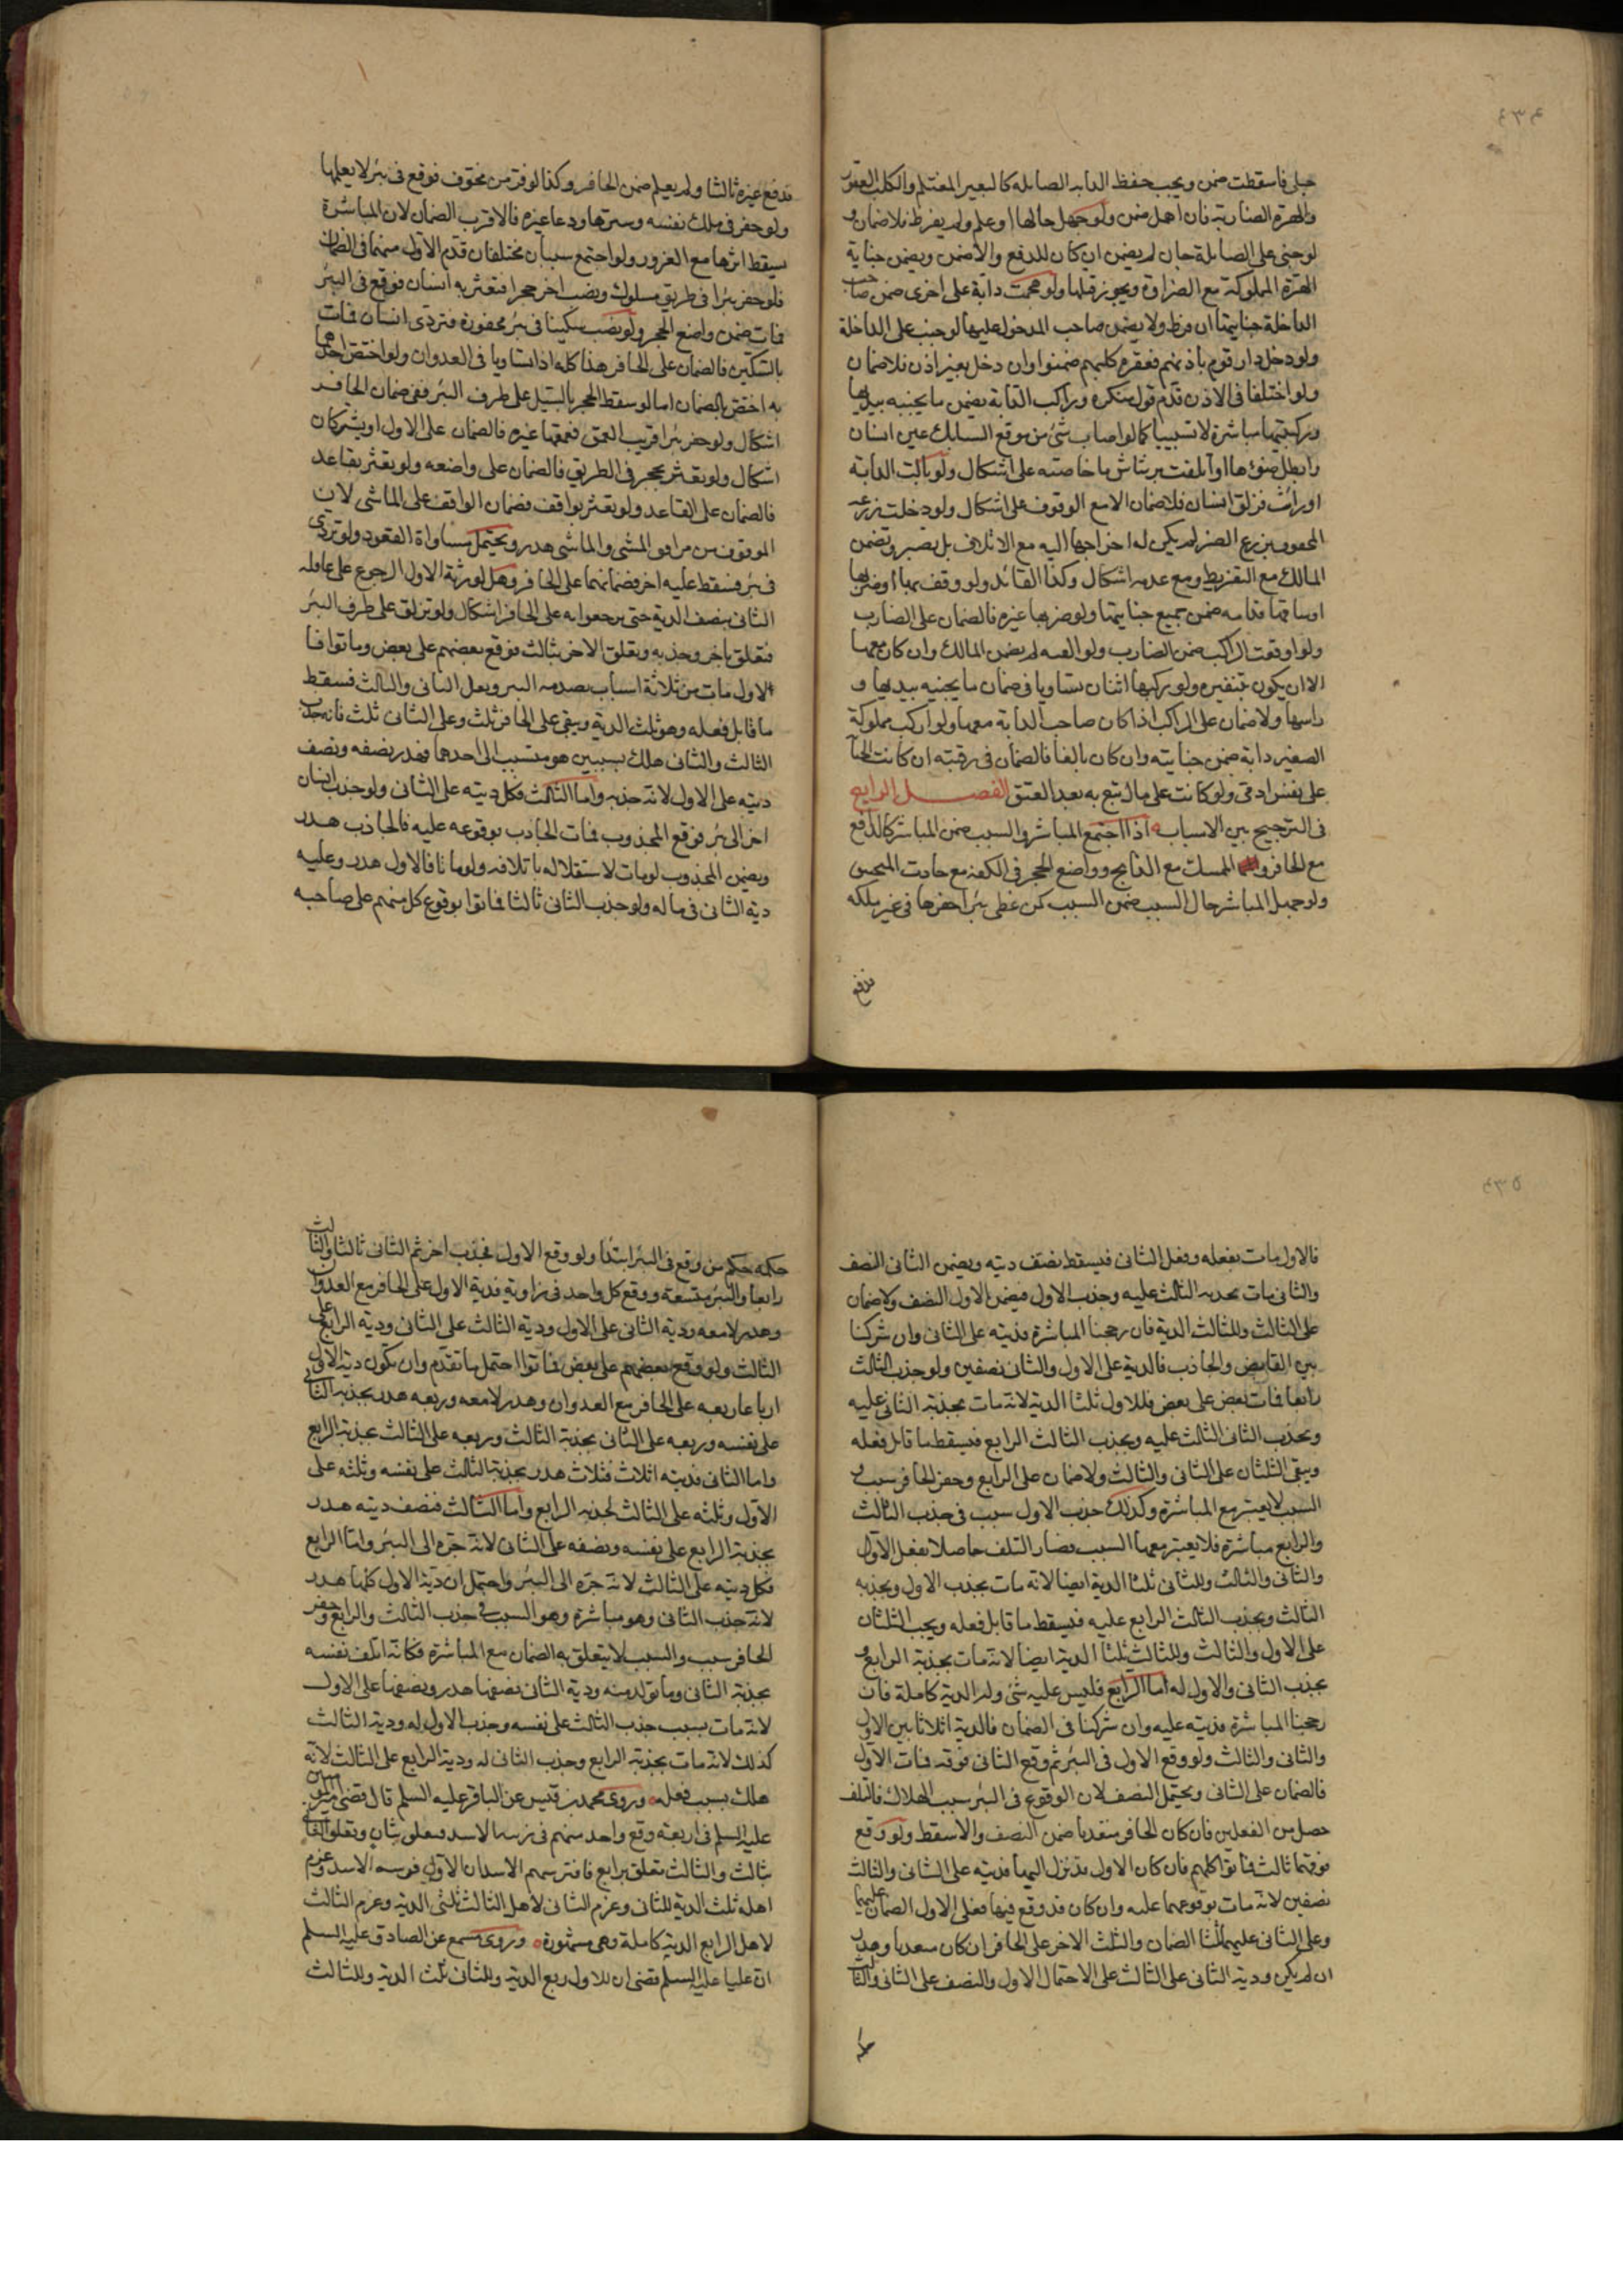 ٤٣٤
حبلى فاسقطت ضمن ويجب حفظ الدابه الصايله كالبعير المغتلم والكلب العقور
والهرة الضاريه فان اهمل ضمن ولو جهل حالها او علم ولم يفرط فلا ضمان و
لو جنى على الصايلة جان لم يضمن ان كان للدفع والا ضمن ويضمن جناية
الهرة المملوكة مع الضراوة ويجوز قتلها ولو هجمت دابة على اخرى ضمن صاحب
الداخلة جنايتها ان فرط ولا يضمن صاحب المدخول عليها لو جنت على الداخلة
ولو دخل دار قوم باذنهم فعقره كلبهم ضمنوا وان دخل بغير اذن فلا ضمان
ولو اختلفا فى الاذن قدم قول منكره وراكب الدابة يضمن ما يجنيه بيديها
وركبتيها مباشرة لا تسبيبا كما لو اصاب شئ من موقع السنابك عين انسان
وابطل ضوءها او اتلفت برشاش ما خاضته على اشكال ولو بالت الدابة
او راثت فزلق انسان فلا ضمان الا مع الوقوف على اشكال ولو دخلت زرعه
المحفوف بزرع الغير لم يكن له اخراجها اليه مع الاتلاف بل يصبر ويضمن
المالك مع التفريط ومع عدمه اشكال وكذا القائد ولو وقف بها او ضربها
او ساقها قدامه ضمن جميع جنايتها ولو ضربها غيره فالضمان على الضارب
ولو اوقعت الراكب ضمن الضارب ولو القته لم يضمن المالك وان كان معها
الا ان يكون بتنفيره ولو ركبها اثنان تساويا فى ضمان ما يجنيه بيديها و
راسها ولا ضمان على الراكب اذا كان صاحب الدابة معها ولو اركب مملوكه
الصغير دابة ضمن جنايته وان كان بالغا فالضمان فى رقبته ان كانت الجناية
على نفس ادمى ولو كانت على مال تبع به بعد العتق الفصل الرابع
فى الترجيح بين الاسباب اذا اجتمع المباشر والسبب ضمن المباشر كالدافع
مع الحافر والممسك مع الذابح وواضع الحجر فى الكفه مع جاذب المنجنيق
ولو جهل المباشر حال السبب ضمن السبب كمن غطى بئرا حفرها فى غير ملكه
فدفع
فدفع غيره ثالثا ولم يعلم ضمن الحافر وكذا لو فر من مخوف فوقع فى بئر لا يعلمها
ولو حفر فى ملك نفسه وسترها ودعا غيره فالاقرب الضمان لان المباشرة
يسقط اثرها مع الغرور ولو اجتمع سببان مختلفان قدم الاول منهما فى الضمان
فلو حفر بئرا فى طريق مسلوك ونصب اخر حجرا فتعثر به انسان فوقع فى البئر
فمات ضمن واضع الحجر ولو نصب سكينا فى بئر محفورة فتردى انسان فمات
بالسكين فالضمان على الحافر هذا كله اذا تساويا فى العدوان ولو اختص احدهما
به اختص بالضمان اما لو سقط الحجر بالسيل على طرف البئر ففى ضمان الحافر
اشكال ولو حفر بئرا قريب العمق فعمقها غيره فالضمان على الاول او يشتركان
اشكال ولو تعثر بحجر فى الطريق فالضمان على واضعه ولو تعثر بقاعد
فالضمان على القاعد ولو تعثر بواقف فضمان الواقف على الماشى لان
الوقوف من مرافق المشى والماشى هدر ويحتمل مساواة القعود ولو تردى
فى بئر فسقط عليه اخر فضمانهما على الحافر وهل لورثة الاول الرجوع على عاقله
الثانى بنصف الدية حتى يرجعوا به على الحافر اشكال ولو تزلق على طرف البئر
فتعلق باخر وجذبه وتعلق الاخر بثالث فوقع بعضهم على بعض وماتوا فا
لاول مات من ثلاثة اسباب بصدمه البئر وبعل الثانى والثالث فسقط
ما قابل فعله وهو ثلث الدية ويبقى على الحافر ثلث وعلى الثانى ثلث فانه جذب
الثالث والثانى هلك بسببين هو متسبب الى احدهما فهدر نصفه ونصف
ديته على الاول لانه جذبه واما الثالث فكل ديته على الثانى ولو جذب انسان
اخر الى بئر فوقع المجذوب فمات الجاذب بوقوعه عليه فالجاذب هدر
ويضمن المجذوب لو مات لاستقلاله باتلافه ولو ماتا فالاول هدر وعليه
دية الثانى فى ماله ولو جذب الثانى ثالثا فماتوا بوقوع كل منهم على صاحبه
٤٣٥
فالاول مات بفعله وفعل الثانى فيسقط نصف ديته ويضمن الثانى النصف
والثانى مات بجذبه الثالث عليه وجذب الاول فيضمن الاول النصف ولا ضمان
على الثالث وللثالث الدية فان رجحنا المباشرة فديته على الثانى وان شركنا
بين القابض والجاذب فالدية على الاول والثانى نصفين ولو جذب الثالث
رابعا فمات بعض على بعض فللاول ثلثا الدية لانه مات بجذبه الثانى عليه
وبجذب الثانى الثالث عليه وبجذب الثالث الرابع فيسقط ما قابل فعله
ويبقى الثلثان على الثانى والثالث ولا ضمان على الرابع وحفر الحافر سبب و
السبب لا يعتبر مع المباشرة وكذلك جذب الاول سبب فى جذب الثالث
والرابع مباشرة فلا يعتبر معها السبب فصار التلف حاصلا بفعل الاول
والثانى والثالث وللثانى ثلثا الدية ايضا لانه مات بجذب الاول وبجذبه
الثالث وبجذب الثالث الرابع عليه فيسقط ما قابل فعله ويجب الثلثان
على الاول والثالث وللثالث ثلثا الدية ايضا لانه مات بجذبه الرابع و
بجذب الثانى والاول له اما الرابع فليس عليه شئ وله الدية كاملة فان
رجحنا المباشرة فديته عليه وان شركنا فى الضمان فالدية اثلاثا بين الاول
والثانى والثالث ولو وقع الاول فى البئر ثم وقع الثانى فوقه فمات الاول
فالضمان على الثانى ويحتمل النصف لان الوقوع فى البئر سبب الهلاك فالتلف
حصل من الفعلين فان كان الحافر متعديا ضمن النصف والا سقط ولو وقع
فوقهما ثالث فماتوا كلهم فان كان الاول نزل اليها فديته على الثانى والثالث
نصفين لانه مات بوقوعهما عليه وان كان قد وقع فيها فعلى الاول الضمان عليهما
وعلى الثانى عليهما ثلثا الضمان والثلث الاخر على الحافر ان كان متعديا وهدر
ان لم يكن ودية الثانى على الثالث على الاحتمال الاول والنصف على الثانى والثالث
حكمه حكم من وقع فى البئر ابتدا ولو وقع الاول فجذب اخر ثم الثانى ثالثا والثالث
رابعا والبئر متسعة ووقع كل واحد فى زاوية فدية الاول على الحافر مع العدوان
وهدر لا معه ودية الثانى على الاول ودية الثالث على الثانى ودية الرابع على
الثالث ولو وقع بعضهم على بعض فماتوا احتمل ما تقدم وان تكون دية الاول
ارباعا ربعه على الحافر مع العدوان وهدر لا معه وربعه هدر بجذبه الثانى
على نفسه وربعه على الثانى بجذبه الثالث وربعه على الثالث بجذبه الرابع
واما الثانى فديته اثلاث فثلاث هدر بجذبه الثالث على نفسه وثلثه على
الاول وثلثه على الثالث لجذبه الرابع واما الثالث فنصف ديته هدر
بجذبه الرابع على نفسه ونصفه على الثانى لانه جره الى البئر واما الرابع
فكل ديته على الثالث لانه جره الى البئر واحتمل ان دية الاول كلها هدر
لانه جذب الثانى وهو مباشرة وهو السبب فى جذب الثالث والرابع وحفر
الحافر سبب والسبب لا يتعلق به الضمان مع المباشرة فكانه اتلف نفسه
بجذبه الثانى وما تولد منه ودية الثانى نصفها هدر ونصفها على الاول
لانه مات بسبب جذب الثالث على نفسه وجذب الاول له ودية الثالث
كذلك لانه مات بجذبه الرابع وجذب الثانى له ودية الرابع على الثالث لانه
هلك بسبب فعله وروى محمد بن قيس عن الباقر عليه السلم قال قضى امير المؤمنين
عليه السلم فى اربعة وقع واحد منهم فى زبية الاسد فتعلق بثان وتعلق الثانى
بثالث والثالث تعلق برابع فافترسهم الاسد ان الاول فريسة الاسد وغرم
اهله ثلث الدية للثانى وغرم الثانى لاهل الثالث ثلثى الدية وغرم الثالث
لاهل الرابع الدية كاملة وهى مشهورة وروى مسمع عن الصادق عليه السلم
ان عليا عليه السلم قضى ان للاول ربع الدية وللثانى ثلث الدية وللثالث